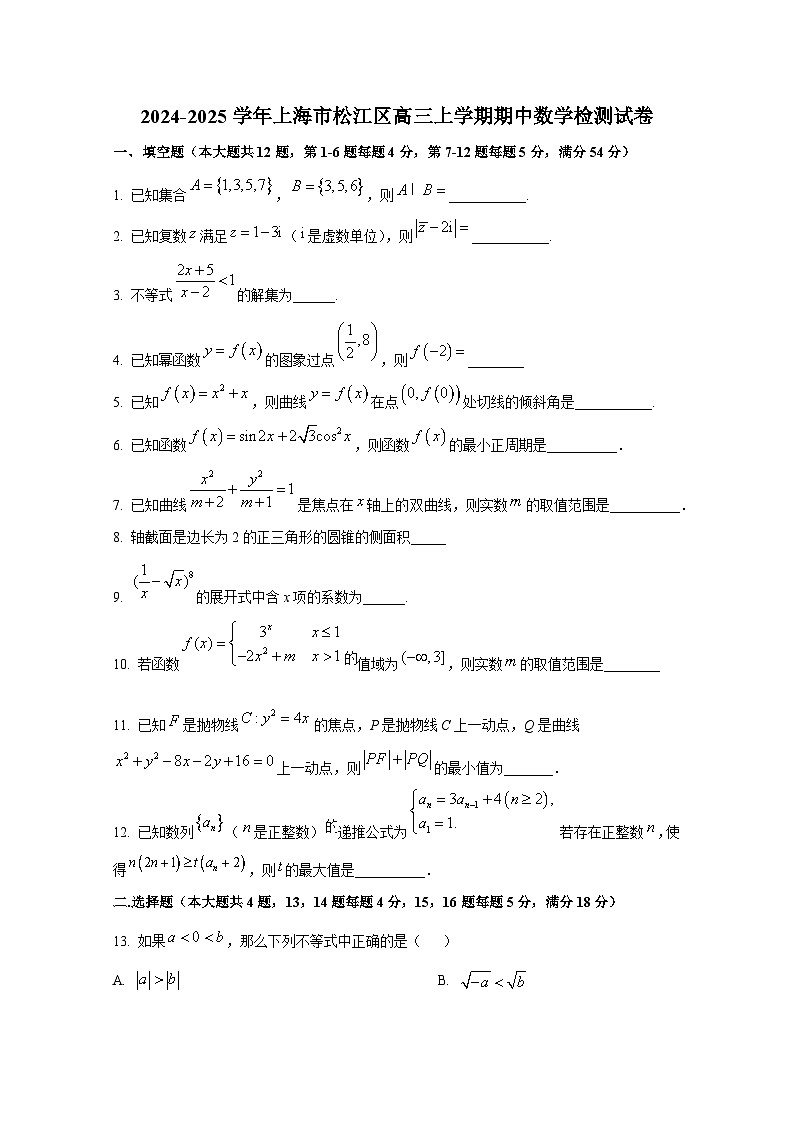 2024-2025 学年上海市松江区高三上学期期中数学检测试卷
一、填空题（本大题共 12 题，第 1-6 题每题 4 分，第 7-12 题每题 5 分，满分 54 分）
1. 已知集合 A={1,3,5,7}，B={3,5,6}，则 A I B=___________.
2. 已知复数 z 满足 z=1−3i（i 是虚数单位），则|z̅−2i|=___________.
3. 不等式 (2x+5)/(x−2)<1 的解集为______.
4. 已知幂函数 y=f(x) 的图象过点 (1/2,8)，则 f(−2)=________
5. 已知 f(x)=x²+x，则曲线 y=f(x) 在点 (0,f(0)) 处切线的倾斜角是___________.
6. 已知函数 f(x)=sin2x+2√3cos²x，则函数 f(x) 的最小正周期是__________．
7. 已知曲线 x²/(m+2)+y²/(m+1)=1 是焦点在 x 轴上的双曲线，则实数 m 的取值范围是__________．
8. 轴截面是边长为 2 的正三角形的圆锥的侧面积_____
9. (1/x−√x)⁸ 的展开式中含 x 项的系数为______.
10. 若函数 f(x)={3ˣ x≤1 −2x²+m x>1 的值域为 (−∞,3]，则实数 m 的取值范围是________
11. 已知 F 是抛物线 C:y²=4x 的焦点，P 是抛物线 C 上一动点，Q 是曲线
x²+y²−8x−2y+16=0 上一动点，则|PF|+|PQ|的最小值为_______．
12. 已知数列{aₙ}（n 是正整数）的递推公式为 {aₙ=3aₙ₋₁+4(n≥2), a₁=1. 若存在正整数 n，使
得 n(2n+1)≥t(aₙ+2)，则 t 的最大值是__________．
二.选择题（本大题共 4 题，13，14 题每题 4 分，15，16 题每题 5 分，满分 18 分）
13. 如果 a<0<b，那么下列不等式中正确的是（ ）
A. |a|>|b| B. √−a<√b